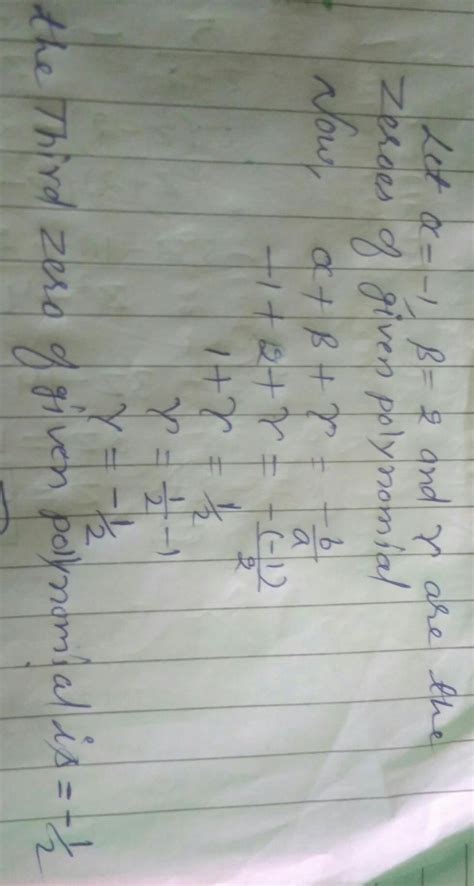 Let α = -1, β = 2 and γ are the
zeroes of given polynomial
Now,
α + β + γ = -b/a
-1 + 2 + γ = -(-1)/2
1 + γ = 1/2
γ = 1/2 - 1
γ = -1/2
the Third zero of given polynomial is = -1/2